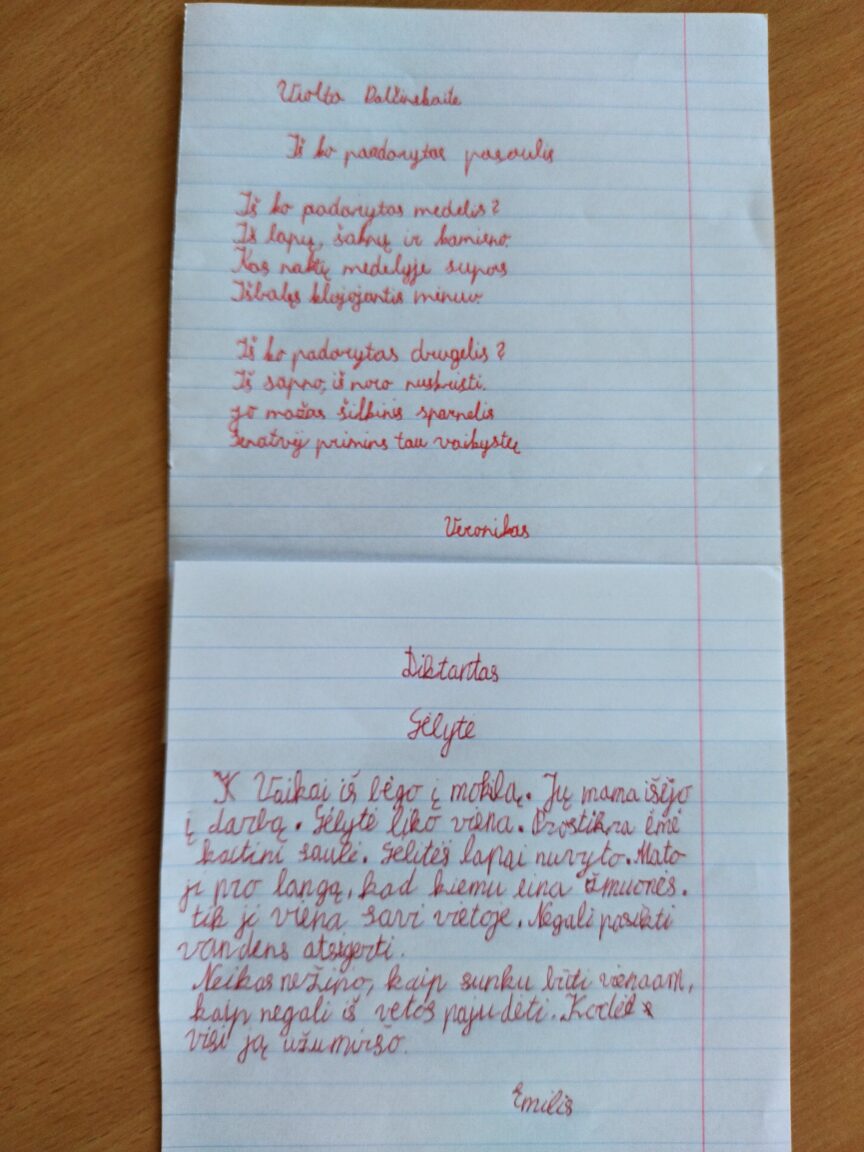 Violta Dalčinskaite
Iš ko paadarytas pasaulis
Iš ko padarytas medelis?
Iš lapų, šaknų ir kamieno.
Kas naktį medelyje supas
Išbalęs klajojantis menuo.
Iš ko padarytas drugelis?
Iš sapno, iš noro nuskristi.
Jo mažas šilkinis sparnelis
Senatvėj primins tau vaikystę
Veronikas
Diktantas
Gėlytė
K Vaikai iš bėgo į mokilą. Jų mama išėjo
į darbą. Gėlytė liko viena. Prostikra ėmė
kaitini saulė. Gelitės lapai nuvyto. Mato
ji pro langą, kad kiemu eina žmuonės.
tik ji viena savi vietoje. Negali pasiekti
vandens atsigerti.
Neikas nežino, kaip sunku būti vienaam,
kaip negali iš vetos pajudėti. Kodėl
visi ją užumiršo.
Emilis